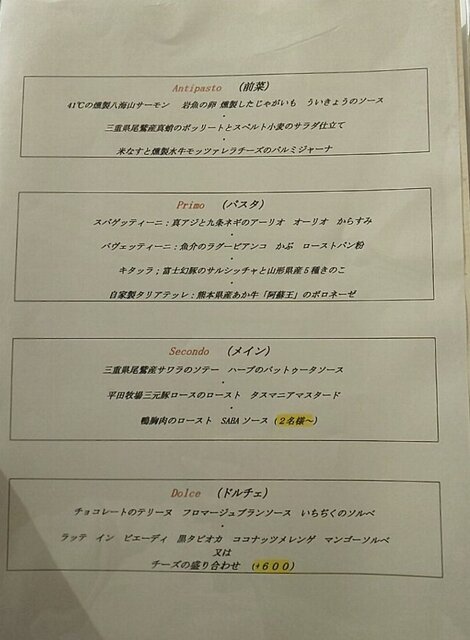 Antipasto （前菜）
41℃の燻製八海山サーモン 岩魚の卵 燻製したじゃがいも ういきょうのソース
・
三重県尾鷲産真蛸のボッリートとスペルト小麦のサラダ仕立て
・
米なすと燻製水牛モッツァレラチーズのパルミジャーナ
Primo （パスタ）
スパゲッティーニ；真アジと九条ネギのアーリオ オーリオ からすみ
・
バヴェッティーニ：魚介のラグービアンコ かぶ ローストパン粉
・
キタッラ；富士幻豚のサルシッチャと山形県産５種きのこ
・
自家製タリアテッレ：熊本県産あか牛「阿蘇王」のボロネーゼ
Secondo （メイン）
三重県尾鷲産サワラのソテー ハーブのバットゥータソース
・
平田牧場三元豚ロースのロースト タスマニアマスタード
・
鴨胸肉のロースト SABAソース（２名様～）
Dolce （ドルチェ）
チョコレートのテリーヌ フロマージュブランソース いちぢくのソルベ
・
ラッテ イン ピエーディ 黒タピオカ ココナッツメレンゲ マンゴーソルベ
又は
チーズの盛り合わせ （+６００）